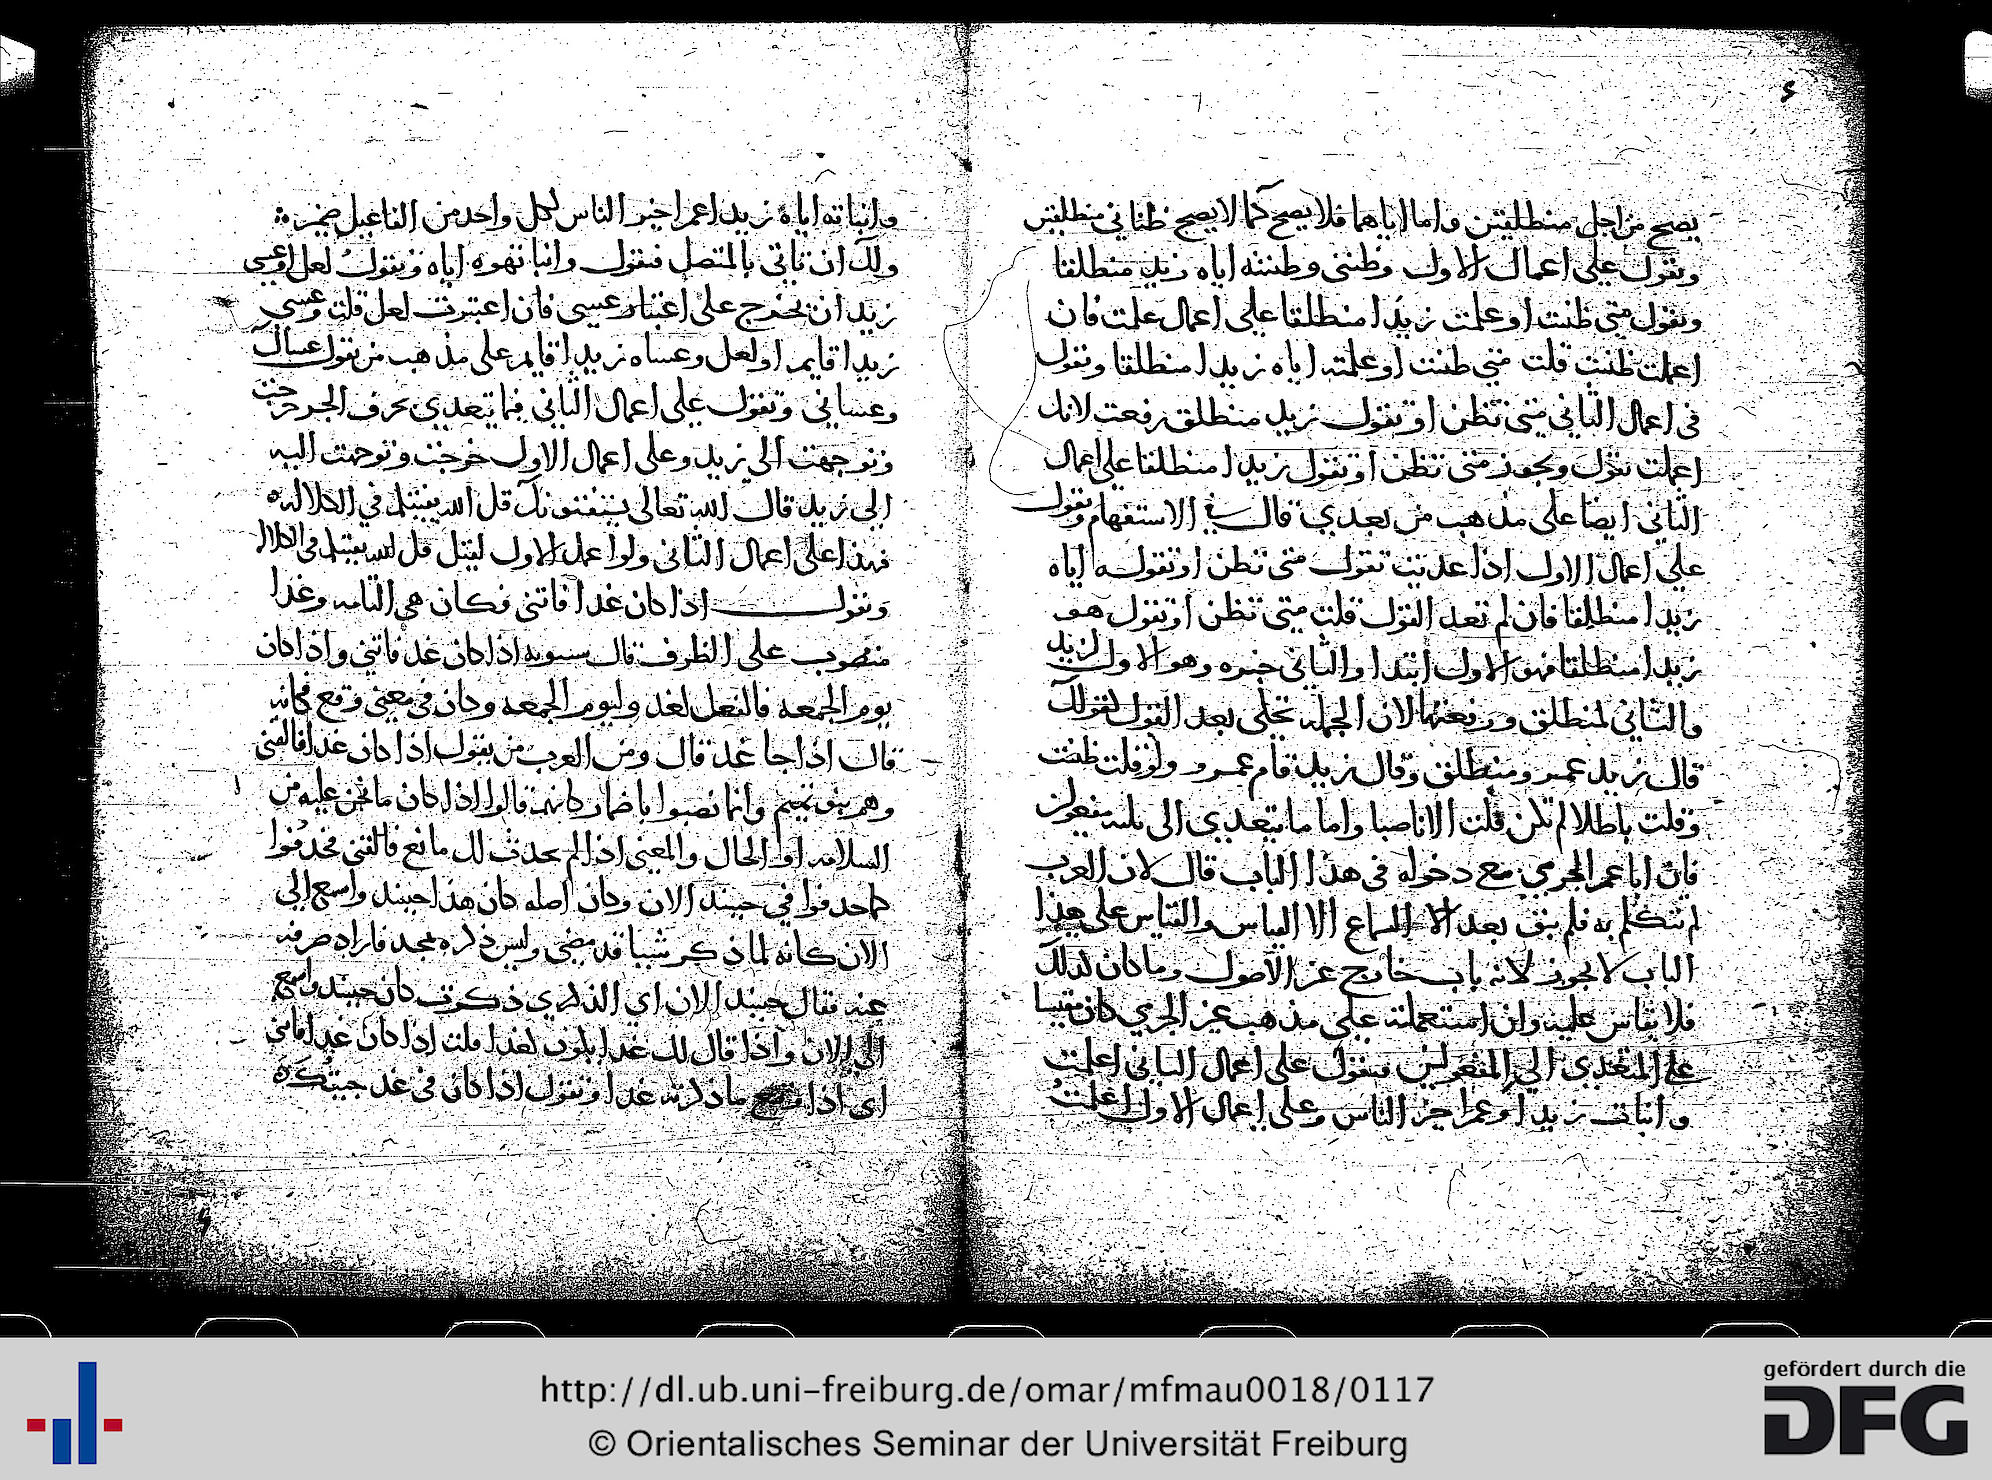 يصح من اجل منطلقين واما اياهما فلا يصح كما لا يصح ظناني منطلقين
وتقول على اعمال الاول وظنني وظننته اياه زيد منطلقا
وتقول متى ظنت او علمت زيدا منطلقا على اعمال علمت فان
اعملت ظننت قلت متى ظننت او علمته اياه زيدا منطلقا وتقول
في اعمال الثاني متى تظن او تقول زيد منطلق رفعت لانك
اعملت تقول ويجوز متى تظن او تقول زيدا منطلقا على اعمال
الثاني ايضا على مذهب من يعدي قال في الاستفهام وتقول
على اعمال الاول اذا عديت تقول متى تظن او تقوله اياه
زيدا منطلقا فان لم تعد القول قلت متى تظن او تقول هو
زيدا منطلقا فهو الاول ابتدا والثاني خبره وهو الاول لزيد
والثاني لمنطلق ورفعتهما لان الجمله تحكى بعد القول لقولك
قال زيد عمرو منطلق وقال زيد قام عمرو ولو قلت ظننت
وقلت باطلا لم تكن قلت الا ناصبا واما ما يتعدى الى ثلثه مفعولين
فان ابا عمر الجرمي مع دخوله في هذا الباب قال لان العرب
لم تتكلم به فلم يبق بعد الا السماع الا القياس والقياس على هذا
الباب لا يجوز لانه باب خارج عن الاصول وما كان كذلك
فلا يقاس عليه وان استعملته على مذهب غير الجرمي كان مقيسا
على المتعدي الى المفعولين فتقول على اعمال الثاني اعلمت
وانباني زيدا وعمرا خير الناس وعلى اعمال الاول اعلمت
وانباته اياه زيدا عمرا خير الناس لكل واحد من الفاعيل ضمير
ولك ان تاتي بالمتصل فتقول وانباتهوه اياه وتقول لعل او عسى
زيد ان يخرج على اعتبار عسى فان اعتبرت لعل قلت وعسى
زيدا قايم او لعل وعساه زيدا قايم على مذهب من يقول عساك
وعساني وتقول على اعمال الثاني فيما يتعدى بحرف الجر خرجت
وتوجهت الى زيد وعلى اعمال الاول خرجت وتوجهت اليه
الى زيد قال الله تعالى يستفتونك قل الله يفتيكم في الكلاله
فهذا على اعمال الثاني ولو اعمل الاول لقيل قل الله يفتيكم في الكلاله
وتقول اذا كان غدا فاتني فكان هي التامه وغدا
منصوب على الظرف قال سيبويه اذا كان غد فاتني واذا كان
يوم الجمعه فالفعل لغد وليوم الجمعه وكان في معنى وقع فكانه
قال اذا جا غد قال ومن العرب من يقول اذا كان غدا فالقني
وهم بنو تميم وانما نصبوا باضمار كانهم قالوا اذا كان ما نحن عليه من
السلامه او الحال والمعنى اذا لم يحدث لك مانع فالقني فحذفوا
كما حذفوا في حينيذ الان وكان اصله كان هذا حينيذ واسمع الى
الان كانه لما ذكر شيا قد مضى وليس ذكره بمجد فاراد صرفه
عنه فقال حينيذ الان اي الذي ذكرت كان حينيذ واسمع
الى الان واذا قال لك غدا يكون كذا قلت اذا كان غدا فاتني
اي اذا وقع ما ذكرته غدا وتقول اذا كان في غد جيتك
http://dl.ub.uni-freiburg.de/omar/mfmau0018/0117
© Orientalisches Seminar der Universität Freiburg
gefördert durch die
DFG